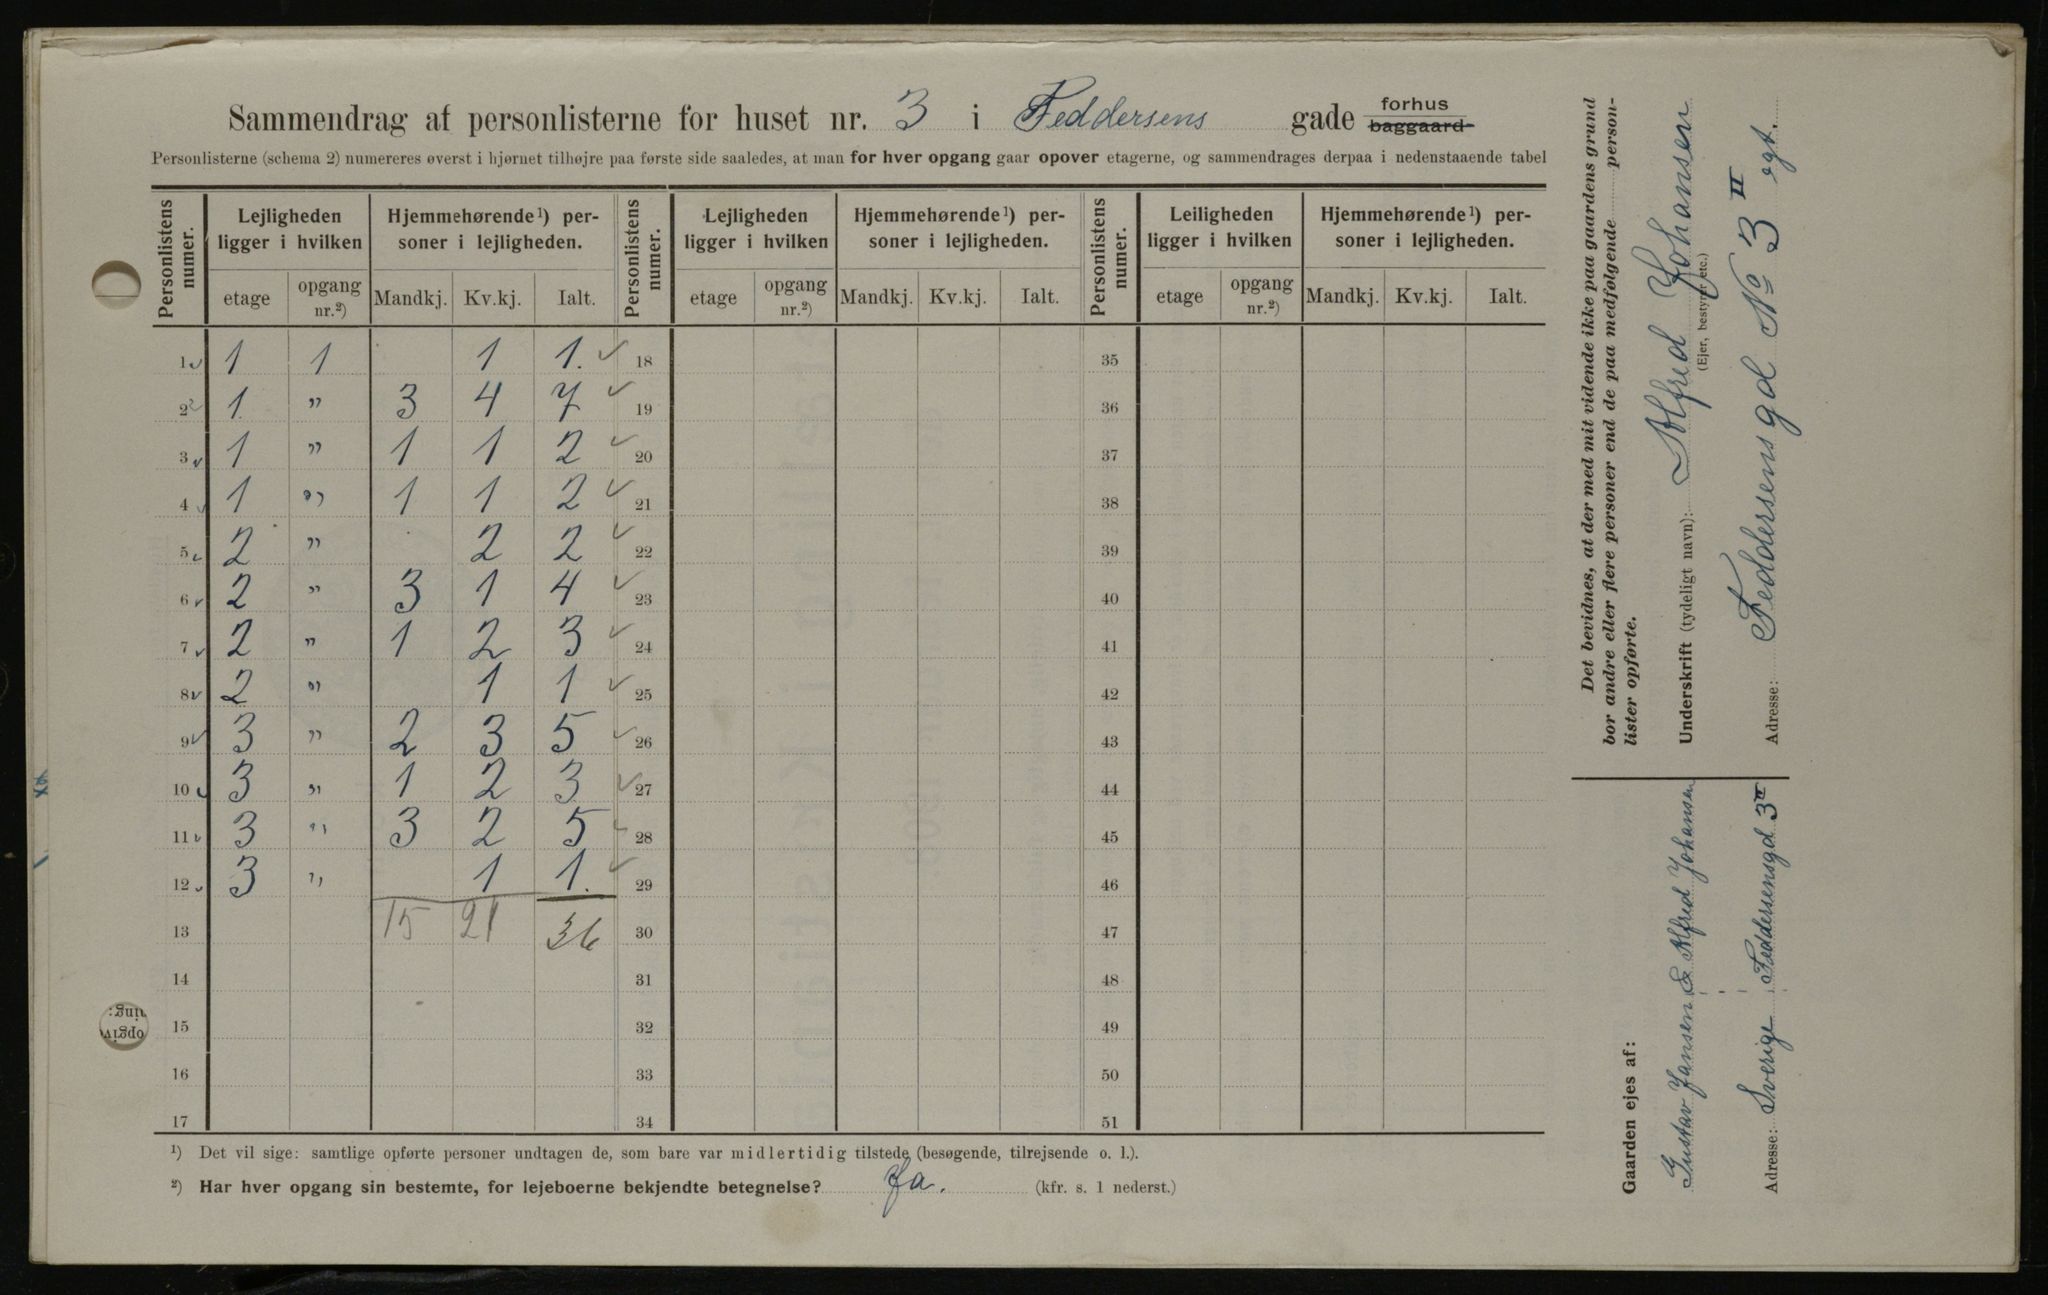 Sammendrag af personlisterne for huset nr. 3 i Feddersens gade forhus baggaard
Personlisterne (schema 2) numereres øverst i hjørnet tilhøjre paa første side saaledes, at man for hver opgang gaar opover etagerne, og sammendrages derpaa i nedenstaaende tabel
Personlistens numer. Lejligheden ligger i hvilken Hjemmehørende¹) personer i lejligheden. Personlistens numer. Lejligheden ligger i hvilken Hjemmehørende¹) personer i lejligheden. Personlistens numer. Leiligheden ligger i hvilken Hjemmehørende¹) personer i lejligheden.
etage opgang nr.²) Mandkj. Kv.kj. Ialt. etage opgang nr.²) Mandkj. Kv.kj. Ialt. etage opgang nr.²) Mandkj. Kv.kj. Ialt.
1 1 1 1 1. 18 35
2 1. " 3 4 7 19 36
3 1 " 1 1 2 20 37
4 1 " 1 1 2 21 38
5 2 " 2 2 22 39
6 2 " 3 1 4 23 40
7 2 " 1 2 3 24 41
8 2 " 1 1 25 42
9 3 " 2 3 5 26 43
10 3 " 1 2 3 27 44
11 3 " 3 2 5 28 45
12 3 " 1 1. 29 46
13 15 21 36 30 47
14 31 48
15 32 49
16 33 50
17 34 51
¹) Det vil sige: samtlige opførte personer undtagen de, som bare var midlertidig tilstede (besøgende, tilrejsende o. l.).
²) Har hver opgang sin bestemte, for lejeboerne bekjendte betegnelse? Ja. (kfr. s. 1 nederst.)
Det bevidnes, at der med mit vidende ikke paa gaardens grund
bor andre eller flere personer end de paa medfølgende person-
lister opførte.
Underskrift (tydeligt navn): Alfred Johansen
(Ejer, bestyrer etc.)
Adresse: Feddersensgd No 3 II egt.
Gaarden ejes af:
Gustav Jansen & Alfred Johansen
Adresse: Sverige Feddersensgd 3 II
opgiv
ning: